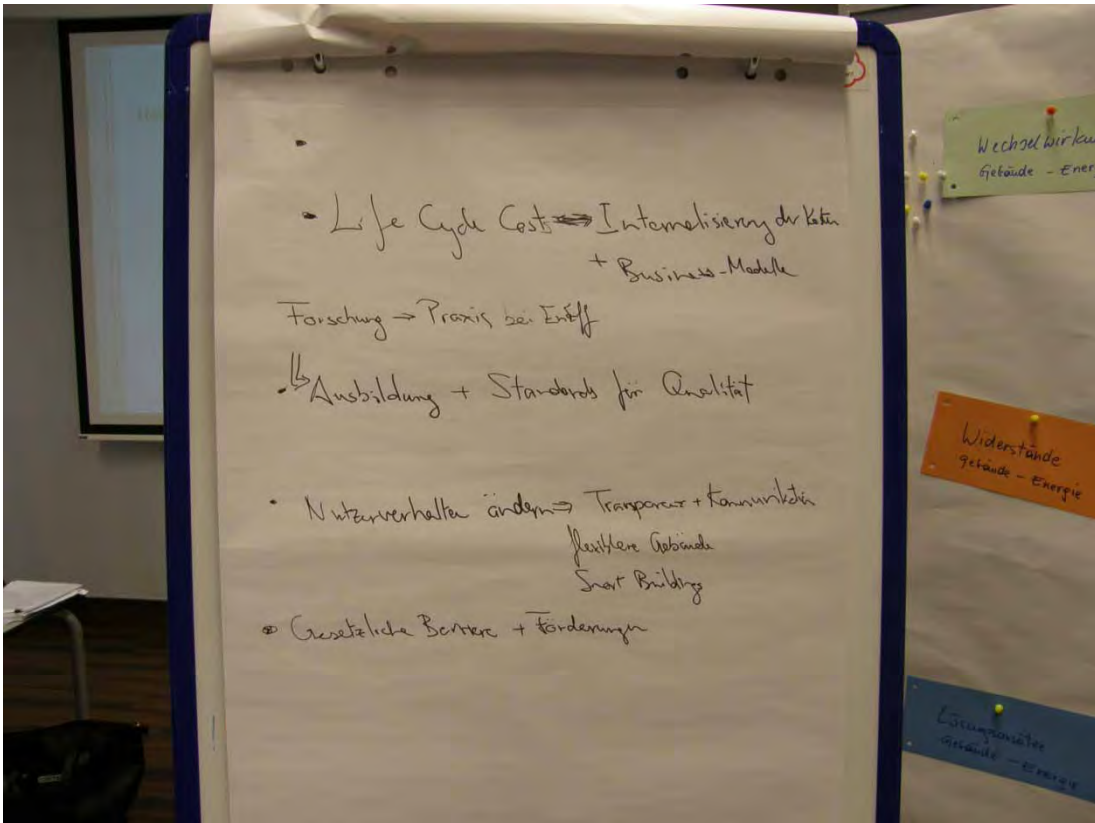 • Life Cycle Cost ⇔ Internalisierung der Kosten
+ Business-Modelle
Forschung → Praxis bei EnEff
⇓
• Ausbildung + Standards für Qualität
• Nutzerverhalten ändern ⇒ Transparenz + Kommunikation
flexiblere Gebäude
Smart Buildings
• Gesetzliche Barriere + Förderungen
Wechselwirku
Gebäude - Ener
Widerstände
Gebäude - Energie
Lösungsansätze
Gebäude - Energie